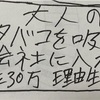 大人の
タバコを吸
会社に入
年30万 理由生